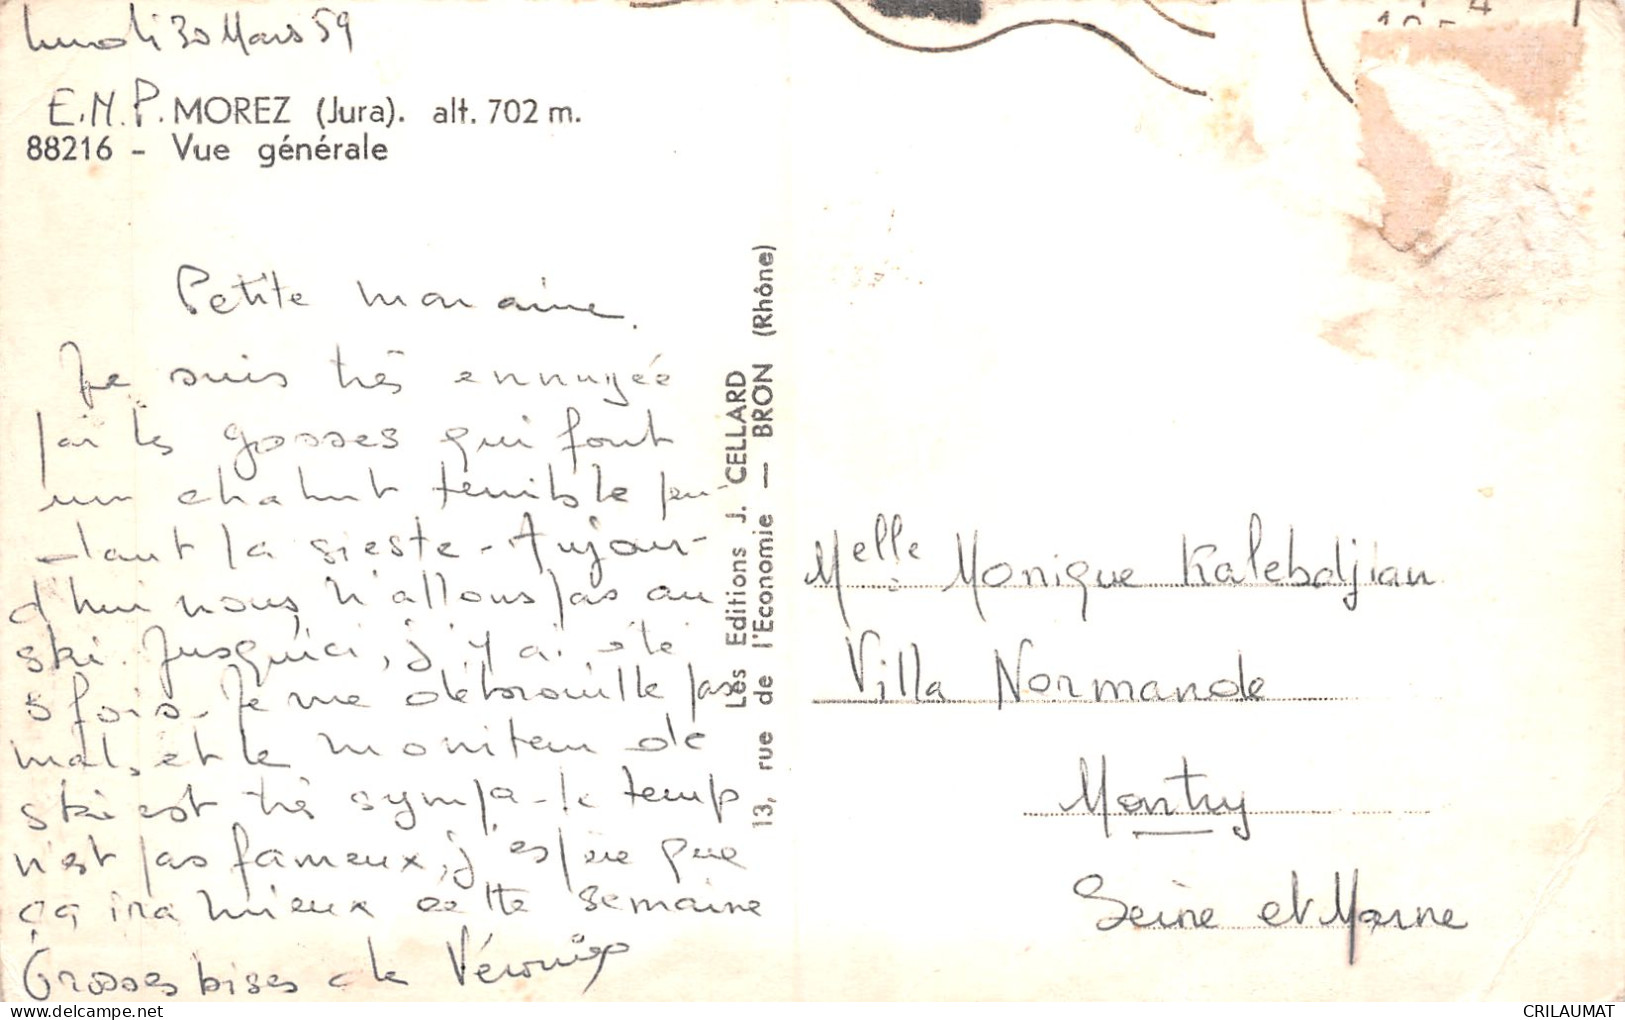 lundi 30 Mars 59
E.N.P. MOREZ (Jura). alt. 702 m.
88216 - Vue générale
Petite marraine.
Je suis très ennuyée
j'ai les gosses qui font
un chahut terrible pen-
dant la sieste - Aujour-
d'hui nous n'allons pas au
ski. Jusqu'ici, j'y ai été
5 fois. Je me débrouille pas
mal, et le moniteur de
ski est très sympa - le temp
n'est pas fameux, j'espère que
ça ira mieux cette semaine
Grosses bises de Véronique
Les Editions J. CELLARD
13, rue de l'Economie — BRON (Rhône)
Melle Monique Kalebdjian
Villa Normande
Montry
Seine et Marne
CRILAUMAT